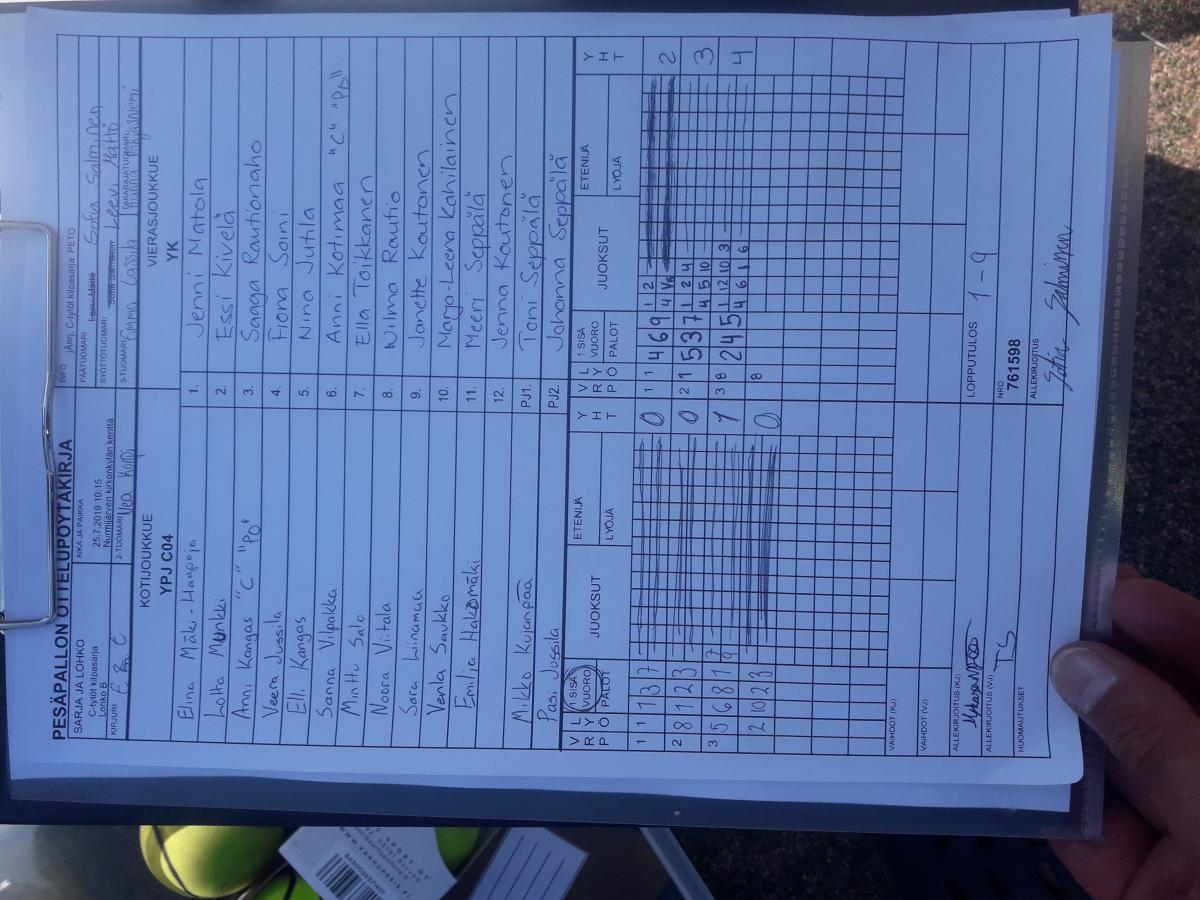 PESÄPALLON OTTELUPÖYTÄKIRJA
SARJA JA LOHKO
C-tytöt kilpasarja
Lohko B
AIKA JA PAIKKA
25.7.2019 10:15
Nurmijärven kirkonkylän kenttä
INFO jÄarj. C-tytöt kilpasarja: PETO
PÄÄTUOMARI Leevi Mättö Sofia Salminen
SYÖTTÖTUOMARI Sofia Salminen Leevi Mättö
KIRJURI
2-TUOMARI Vea Korpi
3-TUOMARI Emma Lassila
TAKARAJATUOMARI
KOTIJOUKKUE
YPJ C04
VIERASJOUKKUE
YK
Elina Mäki-Haapoja
Lotta Munkki
Anni Kangas "C" "PO"
Veera Jussila
Elli Kangas
Sanna Vilpakka
Minttu Salo
Noora Viitala
Sara Liinamaa
Venla Saukko
Emilia Hakomäki
Mikko Kujanpää
Pasi Jussila
1. Jenni Matola
2. Essi Kivelä
3. Saaga Rautionaho
4. Fiona Soini
5. Nina Jutila
6. Anni Kotimaa "C" "PO"
7. Ella Toikkanen
8. Wilma Rautio
9. Janette Koutonen
10. Marja-Leena Kahilainen
11. Meeri Seppälä
12. Jenna Koutonen
PJ1. Toni Seppälä
PJ2. Johanna Seppälä
V R P L Y Ö 1 SISÄ VUORO PALOT JUOKSUT ETENIJÄ LYÖJÄ Y H T
1 1 1 3 7 0
2 8 1 2 3 0
3 5 6 8 1 7 9 1
2 10 2 3 0
V R P L Y Ö 1 SISÄ VUORO PALOT JUOKSUT ETENIJÄ LYÖJÄ Y H T
1 1 4 6 9 1 2 2
2 1 5 3 7 1 2 4 4 5 10 3
3 8 2 4 5 1 12 10 3 4 6 1 6 4
8
VAIHDOT (KJ)
VAIHDOT (VJ)
ALLEKIRJOITUS (KJ)
ALLEKIRJOITUS (VJ) TS
HUOMAUTUKSET
LOPPUTULOS 1-9
NRO
761598
ALLEKIRJOITUS
Sofia Salminen